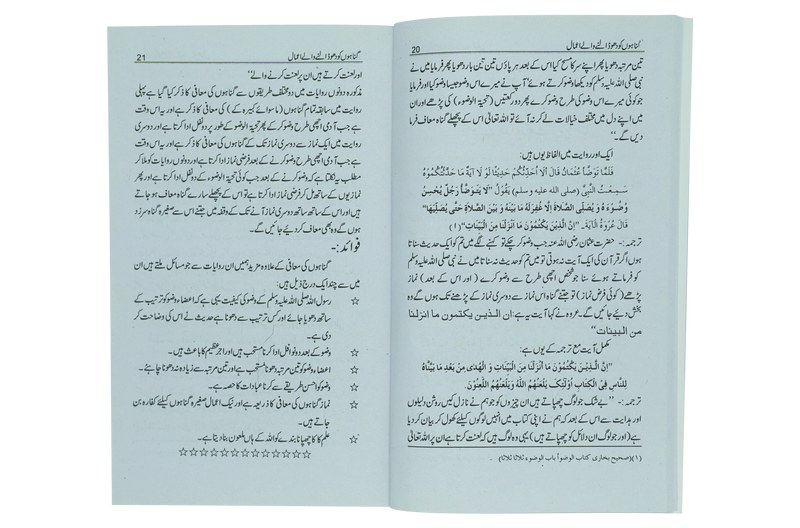 20
گناہوں کو دھو ڈالنے والے اعمال
تین مرتبہ دھویا پھر اپنے سر کا مسح کیا اس کے بعد ہر پاؤں تین تین بار دھویا پھر فرمایا میں نے
نبی صلی اللہ علیہ وسلم کو دیکھا وضو کرتے ہوئے آپ نے میرے اس وضو جیسا وضو کیا اور فرمایا
جو کوئی میرے اس وضو کی طرح وضو کرے پھر دو رکعتیں (تحیۃ الوضوء) کی پڑھے اور ان
میں اپنے دل میں مختلف خیالات لے کر نہ آئے تو اللہ تعالیٰ اس کے پچھلے گناہ معاف فرما
دیں گے۔
ایک اور روایت میں الفاظ یوں ہیں:
فَلَمَّا تَوَضَّأَ عُثْمَانُ قَالَ اَلاَ اُحَدِّثُكُمْ حَدِيْثًا لَوْ لاَ آيَةٌ مَا حَدَّثْتُكُمُوْهُ
سَمِعْتُ النَّبِيَّ (صلى الله عليه وسلم) يَقُوْلُ "لاَ يَتَوَضَّأُ رَجُلٌ يُحْسِنُ
وُضُوْءَهُ وَ يُصَلِّي الصَّلاَةَ اِلاَّ غُفِرَ لَهُ مَا بَيْنَهُ وَ بَيْنَ الصَّلاَةِ حَتّٰى يُصَلِّيَهَا"
قَالَ عُرْوَةُ الْاَيَةَ۔ "اِنَّ الَّذِيْنَ يَكْتُمُوْنَ مَا اَنْزَلْنَا مِنَ الْبَيِّنَاتِ"(۱)
ترجمہ:۔ حضرت عثمان رضی اللہ عنہ جب وضو کر چکے تو کہنے لگے میں تم کو ایک حدیث سناتا
ہوں اگر قرآن کی ایک آیت نہ ہوتی تو میں تم کو حدیث نہ سناتا میں نے نبی صلی اللہ علیہ وسلم
کو فرماتے ہوئے سنا جو شخص اچھی طرح سے وضو کرے (اور اس کے بعد) نماز
پڑھے (کوئی فرض نماز) تو جتنے گناہ اس نماز سے دوسری نماز کے پڑھنے تک ہوں گے وہ
بخش دیئے جائیں گے۔ عروہ نے کہا آیت یہ ہے: ان الذین یکتمون ما انزلنا
من البینات"
مکمل آیت مع ترجمہ کے یوں ہے:
"اِنَّ الَّذِيْنَ يَكْتُمُوْنَ مَا اَنْزَلْنَا مِنَ الْبَيِّنَاتِ وَ الْهُدٰى مِنْ بَعْدِ مَا بَيَّنَّاهُ
لِلنَّاسِ فِي الْكِتَابِ اُوْلٰئِكَ يَلْعَنُهُمُ اللّٰهُ وَيَلْعَنُهُمُ اللّٰعِنُوْنَ۔
ترجمہ:۔ "بے شک جو لوگ چھپاتے ہیں ان چیزوں کو جو ہم نے نازل کیں روشن دلیلوں
اور ہدایت سے اس کے بعد کہ ہم نے اپنی کتاب میں انہیں لوگوں کیلئے کھول کر بیان کر دیا
ہے (اور جو لوگ ان دلائل کو چھپاتے ہیں) یہی وہ لوگ ہیں کہ لعنت کرتا ہے ان پر اللہ تعالیٰ
(۱) (صحیح بخاری کتاب الوضو/ باب الوضوء ثلاثا ثلاثا)
21
گناہوں کو دھو ڈالنے والے اعمال
اور لعنت کرتے ہیں ان پر لعنت کرنے والے"
مذکورہ دونوں روایات میں دو مختلف طریقوں سے گناہوں کی معافی کا ذکر کیا گیا ہے پہلی
روایت میں سابقہ تمام گناہوں (ماسوائے کبیرہ کے) کی معافی کا ذکر ہے اور یہ اس وقت
ہے جب آدمی اچھی طرح وضو کر کے پھر تحیۃ الوضو کے طور پر دو نفل ادا کرتا ہے اور دوسری
روایت میں ایک نماز سے دوسری نماز تک کے گناہوں کی معافی کا ذکر ہے اور یہ اس وقت
ہے جب آدمی اچھی طرح وضو کرنے کے بعد فرضی نماز ادا کرتا ہے اور دونوں روایات کو ملا کر
مطلب یہ نکلتا ہے کہ وضو کرنے کے بعد جب کوئی تحیۃ الوضو کے دو نفل ادا کرتا ہے اور پھر
نماز یوں کے ساتھ مل کر فرضی نماز ادا کرتا ہے تو اس کے پچھلے سارے گناہ معاف ہو جاتے
ہیں اور اس کے ساتھ ساتھ دوسری نماز آنے تک کے وقفہ میں جتنے اس سے صغیرہ گناہ سرزد
ہوں گے وہ بھی معاف کر دیئے جائیں گے۔
فوائد:۔
گناہوں کی معافی کے علاوہ مزید ہمیں ان روایات سے جو مسائل ملتے ہیں ان
میں سے چند ایک درج ذیل ہیں:
☆ رسول اللہ صلی اللہ علیہ وسلم کے وضو کی کیفیت یہی ہے کہ اعضاء وضو کو ترتیب کے
ساتھ دھویا جائے اور کس ترتیب سے دھونا ہے حدیث نے اس کی وضاحت کر
دی ہے۔
☆ وضو کے بعد دو نوافل ادا کرنا مستحب ہیں اور اجر عظیم کا باعث ہیں۔
☆ اعضاء وضو کو تین مرتبہ دھونا مستحب ہے اور تین مرتبہ سے زیادہ نہ دھونا چاہئے۔
☆ وضو کو احسن طریقے سے کرنا عبادات کا حصہ ہے۔
☆ نماز گناہوں کی معافی کا ذریعہ ہے اور نیک اعمال صغیرہ گناہوں کیلئے کفارہ بن
جاتے ہیں۔
☆ علم کا کا چھپانا بندے کو اللہ کے ہاں ملعون بنا دیتا ہے۔
☆☆☆☆☆☆☆☆☆☆☆☆☆